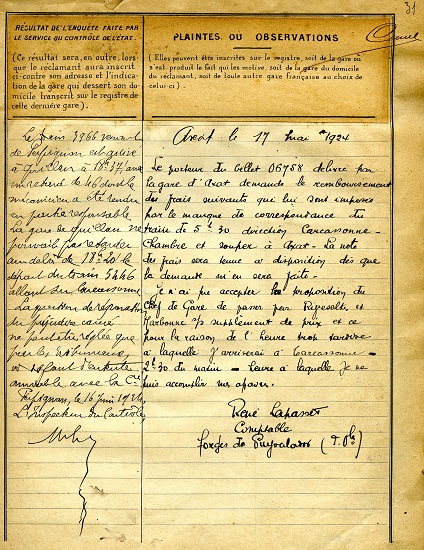 31
RÉSULTAT DE L'ENQUÊTE FAITE PAR
LE SERVICE DU CONTRÔLE DE L'ÉTAT.
(Ce résultat sera, en outre, lors-
que le réclamant aura inscrit
ci-contre son adresse et l'indica-
tion de la gare qui dessert son do-
micile transcrit sur le registre de
cette dernière gare).
PLAINTES OU OBSERVATIONS
(Elles peuvent être inscrites sur le registre, soit de la gare où
s'est produit le fait qui les motive, soit de la gare du domicile
du réclamant, soit de toute autre gare française au choix de
celui-ci)
Le train 5966 venant
de Perpignan est arrivé
à Quillan à 18h37, avec
un retard de 46' dont le
mécanicien a été rendu
en partie responsable.
La gare de Quillan ne
pouvait pas retarder
au delà de 18h20 le
départ du train 5466
allant sur Carcassonne
La question de réparation
du préjudice causé
ne peut être réglée que
par les tribunaux,
à défaut d'entente
amiable avec la Cie
Perpignan, le 16 juin 1924
L'Inspecteur du Contrôle,
Axat le 17 mai 1924
Le porteur du billet 06758 délivré par
la gare d'Axat demande le remboursement
des frais suivants qui lui sont imposés
par le manque de correspondance du
train de 5h30 direction Carcassonne-
Chambre et souper à Axat. La note
de frais sera tenue à disposition dès que
la demande m'en sera faite.
je n'ai pu accepter la proposition du
Chef de Gare de passer par Rivesaltes et
Narbonne supplément de prix et ce
pour la raison de l'heure trop tardive
à laquelle j'arriverai à Carcassonne -
2h30 du matin - heure à laquelle je ne
puis accomplir mes affaires.
René Lapasset
Comptable
forges de Puyvalador (P. Ols)